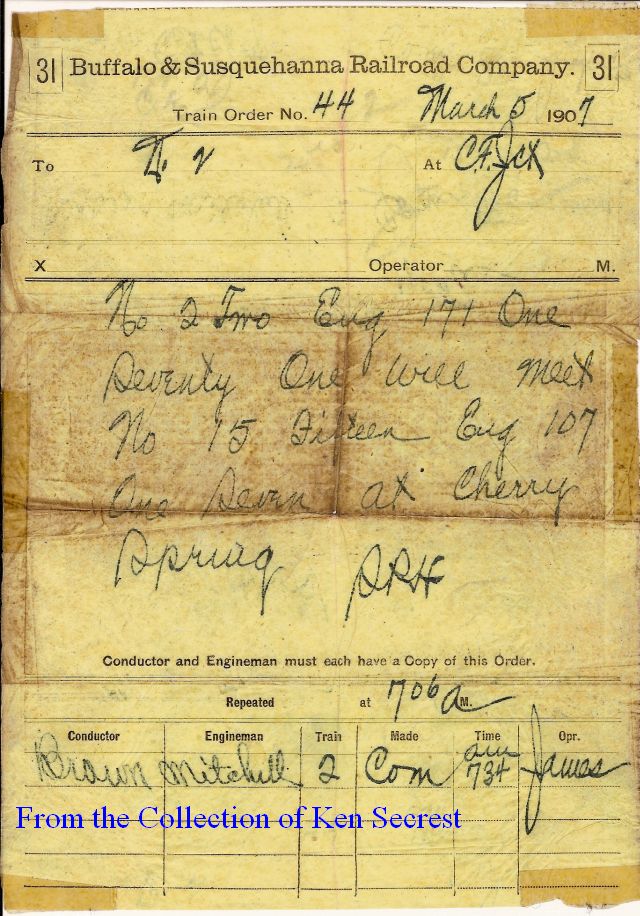 31 Buffalo & Susquehanna Railroad Company. 31
Train Order No. 44 March 5 1907
To At C.F. Jct
X Operator M.
No 2 Two Eng 171 One
Seventy One will meet
No 15 Fifteen Eng 107
One Seven at Cherry
Spring
Conductor and Engineman must each have a Copy of this Order.
Repeated at 706 A M.
Conductor Engineman Train Made Time Opr.
Braun Mitchell 2 Com am 734 James
From the Collection of Ken Secrest